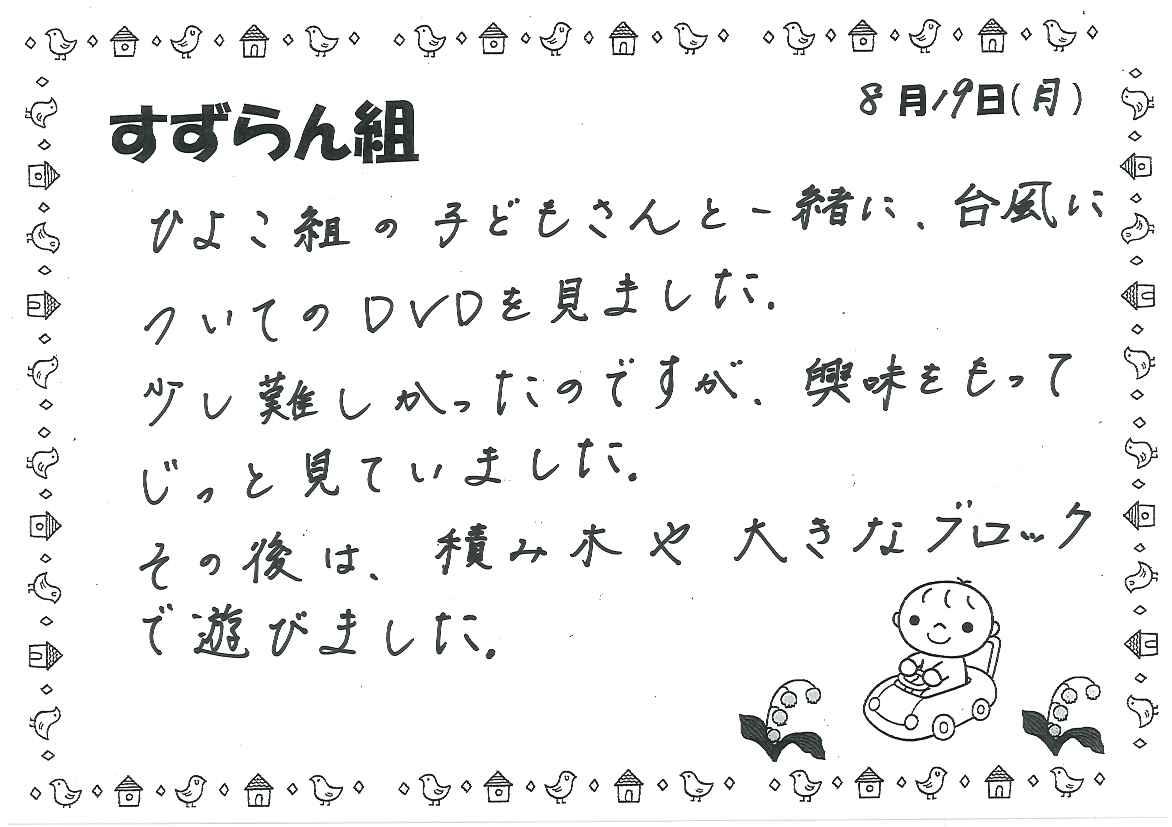 8月19日(月)
すずらん組
ひよこ組の子どもさんと一緒に、台風に
ついてのDVDを見ました。
少し難しかったのですが、興味をもって
じっと見ていました。
その後は、積み木や大きなブロック
で遊びました。